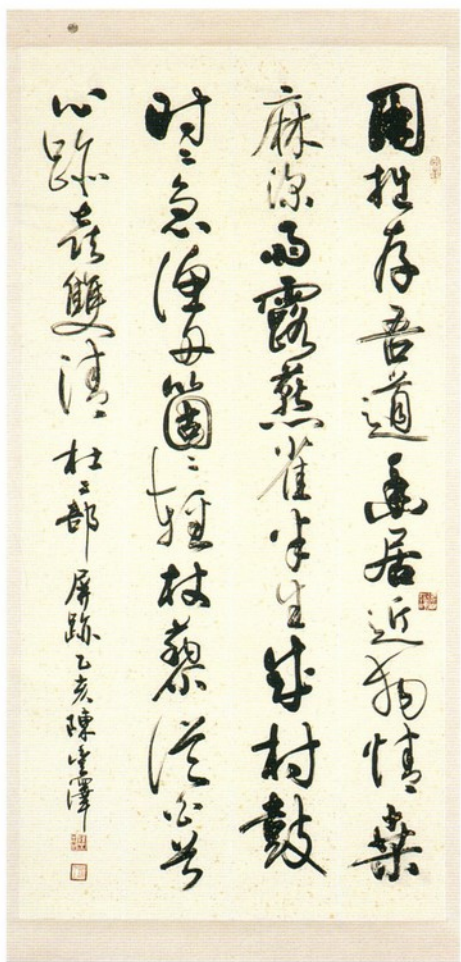 用拙存吾道幽居近物情桑
麻深雨露燕雀半生成村鼓
時〻急漁舟箇〻輕杖藜從白首
心跡喜雙清 杜工部 屏跡 乙亥陳澤